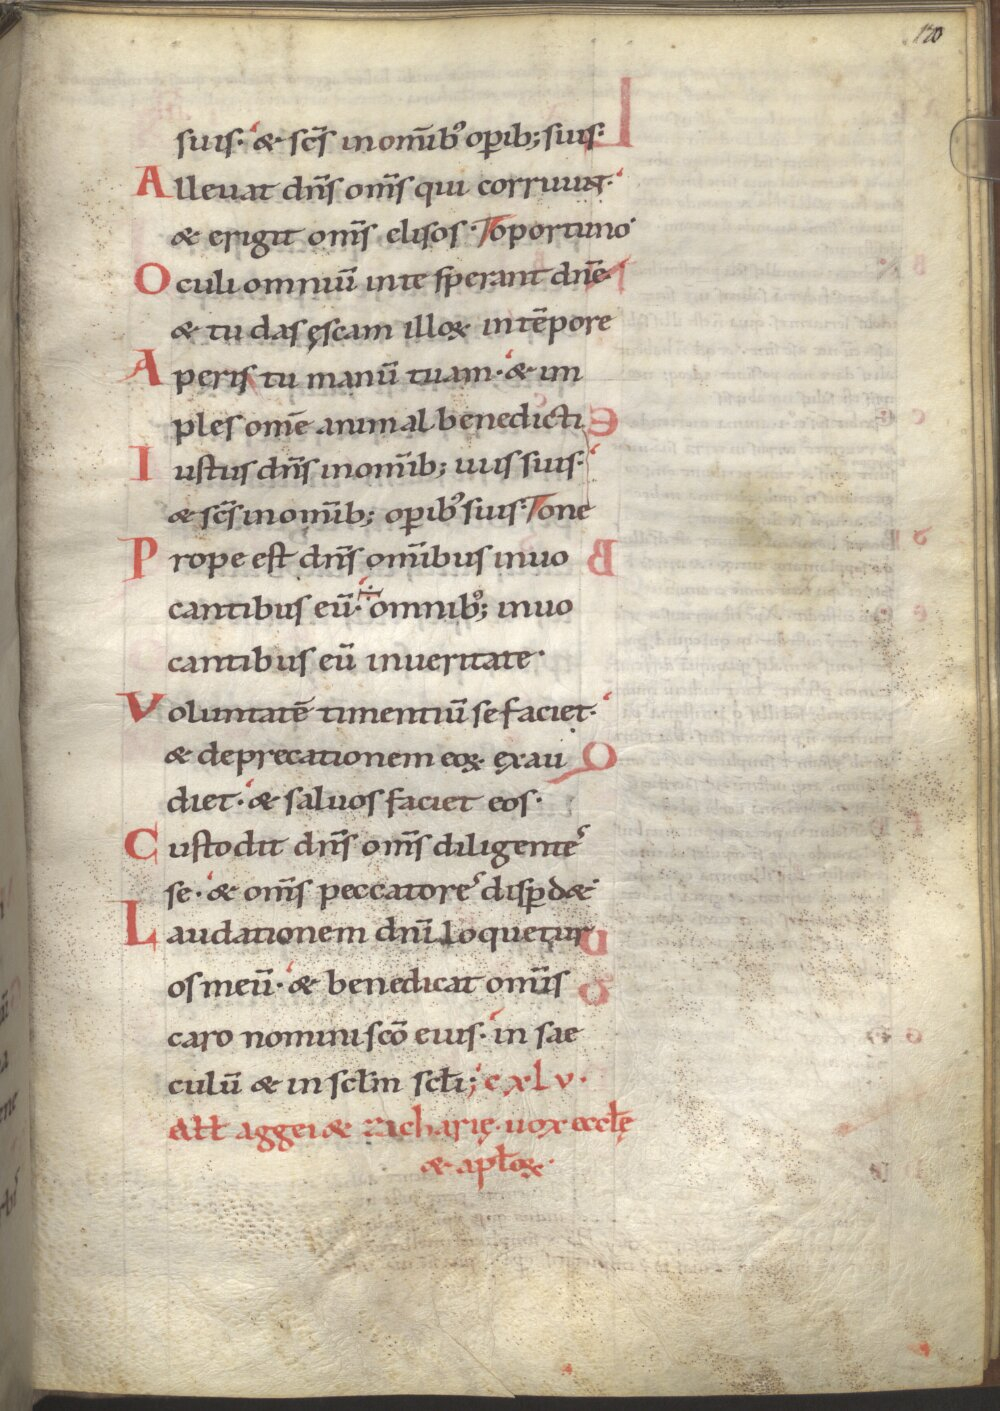 170
suis· & scīs in omīb' opib; suis:
Alleuat dnīs omīs qui corruunt·
& erigit omīs elisos· oportuno
Oculi omniū in te sperant dnē·
& tu das ęscam illoꝝ in tēpore
Aperis tu manū tuam· & im
ples omē animal benedicti
Iustus dnīs in omīb; uiis suis·
& scīs in omīb; opib' suis· one
Prope est dnīs omībus inuo
cantibus eū· omnib'; inuo
cantibus eū in ueritate·
Voluntatē timentiū se faciet·
& deprecationem eoꝝ exau
diet· & saluos faciet eos·
Custodit dnīs omīs diligente s
se· & omīs peccatores dispdæ·
Laudationem dnī loquetur
os meū· & benedicat omīs
caro nomini scō eius· in sae
culū & in sclm scli; cxlv·
All aggei & zacharię· uox ecclę
& aploꝝ·